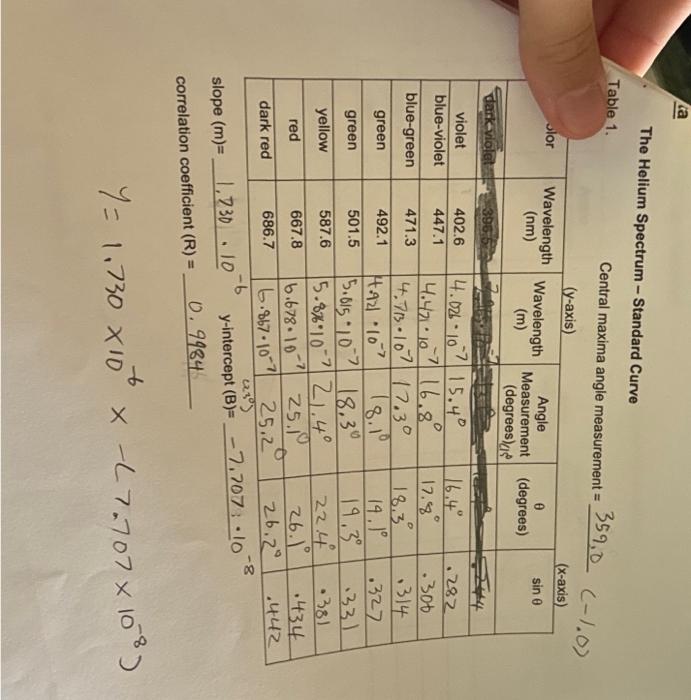 ta
The Helium Spectrum – Standard Curve
Table 1.
Central maxima angle measurement = 359.0 (-1.0)
(y-axis) (x-axis)
olor Wavelength (nm) Wavelength (m) Angle Measurement (degrees) θ (degrees) sin θ
dark violet 396.5
violet 402.6 4.026·10⁻⁷ 15.4° 16.4° .282
blue-violet 447.1 4.471·10⁻⁷ 16.8° 17.8° .306
blue-green 471.3 4.713·10⁻⁷ 17.3° 18.3° .314
green 492.1 4.921·10⁻⁷ 18.1° 19.1° .327
green 501.5 5.015·10⁻⁷ 18.3° 19.3° .331
yellow 587.6 5.876·10⁻⁷ 21.4° 22.4° .381
red 667.8 6.678·10⁻⁷ 25.1° 26.1° .434
dark red 686.7 6.867·10⁻⁷ 25.2° 26.2° .442
slope (m)= 1.730·10⁻⁶ y-intercept (B)= -7.707·10⁻⁸
correlation coefficient (R) = 0.9984
y = 1.730 x 10⁻⁶ x -(7.707 x 10⁻⁸)